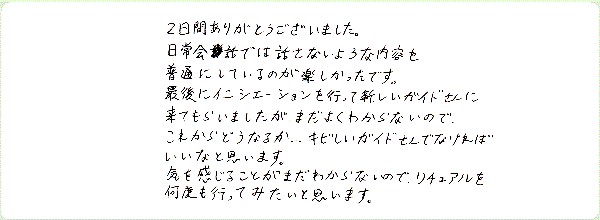 2日間ありがとうございました。
日常会話では話さないような内容を
普通にしているのが楽しかったです。
最後にイニシエーションを行って新しいガイドさんに
来てもらいましたがまだよくわからないので、
これからどうなるか、、キビしいガイドさんでなければ
いいなと思います。
気を感じることがまだわからないので、リチュアルを
何度も行ってみたいと思います。